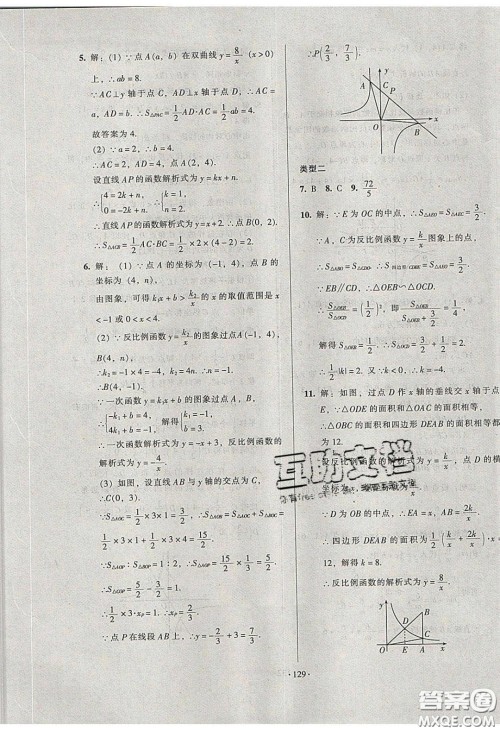 5. 解：(1)∵点A(a，b)在双曲线y=8/x(x>0)
上，∴ab=8.
∵AC⊥y轴于点C，AD⊥x轴于点D，∴AC=
a，AD=b. ∴S△PAC=1/2AD·AC=1/2ab=4.
故答案为4.
(2)∵a=2，∴b=4. ∴AC=2，AD=4，点A(2，4).
设直线AP的函数解析式为y=kx+n.
∴{4=2k+n，0=-2k+n. ∴{k=1，n=2.
∴直线AP的函数解析式为y=x+2. ∴点B(0，2).
∴S△ABC=1/2AC·BC=1/2×2×(4-2)=2.
6. 解：(1)∵点A的坐标为(-1，4)，点B的
坐标为(4，n)，
由图象，可得k₁x+b>k₂/x的x的取值范围是x
<-1或0<x<4.
(2)∵反比例函数y=k₂/x的图象过点A(-1，4)，
B(4，n)，
∴k₂=-1×4=-4，k₂=4n. ∴n=-1.
∴B(4，-1).
∵一次函数y=k₁x+b的图象过点A，点B，
∴{-k₁+b=4，4k₁+b=-1. 解得{k₁=-1，b=3.
∴一次函数解析式为y=-x+3，反比例函数的
解析式为y=-4/x.
(3)如图，设直线AB与y轴的交点为C，
∴C(0，3).
∵S△AOC=1/2×3×1=3/2，
∴S△AOB=1/2×3×1+1/2×3×4=15/2.
∵S△AOP:S△BOP=1:2，∴S△AOP=15/2×1/3=5/2.
∴S△COP=5/2-3/2=1.
∴1/2×3·xP=1. ∴xP=2/3.
∵点P在线段AB上，∴y=-2/3+3=7/3.
∴P(2/3，7/3).
y
A
P
O
B
x
类型二
7. B 8. C 9. 72/5
10. 解：∵E为OC的中点，∴S△AEO=S△AEC=3/2.
∵点A，B为反比例函数y=k/x图象上的点，
∴EB∥CD，∴△OEB∽△OCD.
解得S△OEB=1/2.
∴1/2|k|=1/2×4. ∴k=-4.
11. 解：如图，过点D作x轴的垂线交x轴于点
E，∵△ODE的面积和△OAC的面积相等，
∴△OBC的面积和四边形DEAB的面积相等，
为12.
∵D为OB的中点，∴EA=x，AB=2k/x.
12，解得k=8.
∴反比例函数的解析式为y=8/x.
y
B
D
C
O
E
A
x
·129·
互助文档
答案圈
MXQE.COM